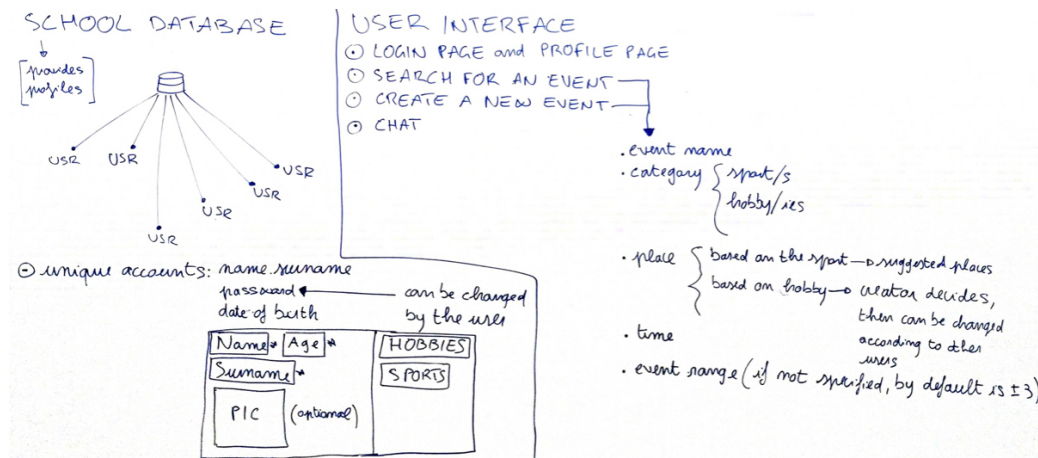 SCHOOL DATABASE
[provides
profiles]
USR
USR
USR
USR
USR
USR
⊙ unique accounts: name.surname
password
date of birth
can be changed
by the user
Name*
Age*
Surname*
PIC
(optional)
HOBBIES
SPORTS
USER INTERFACE
⊙ LOGIN PAGE and PROFILE PAGE
⊙ SEARCH FOR AN EVENT
⊙ CREATE A NEW EVENT
⊙ CHAT
. event name
. category { sport/s
hobby/ies
. place { based on the sport → suggested places
based on hobby → creator decides,
then can be changed
according to other
users
. time
. event range (if not specified, by default is ±3)